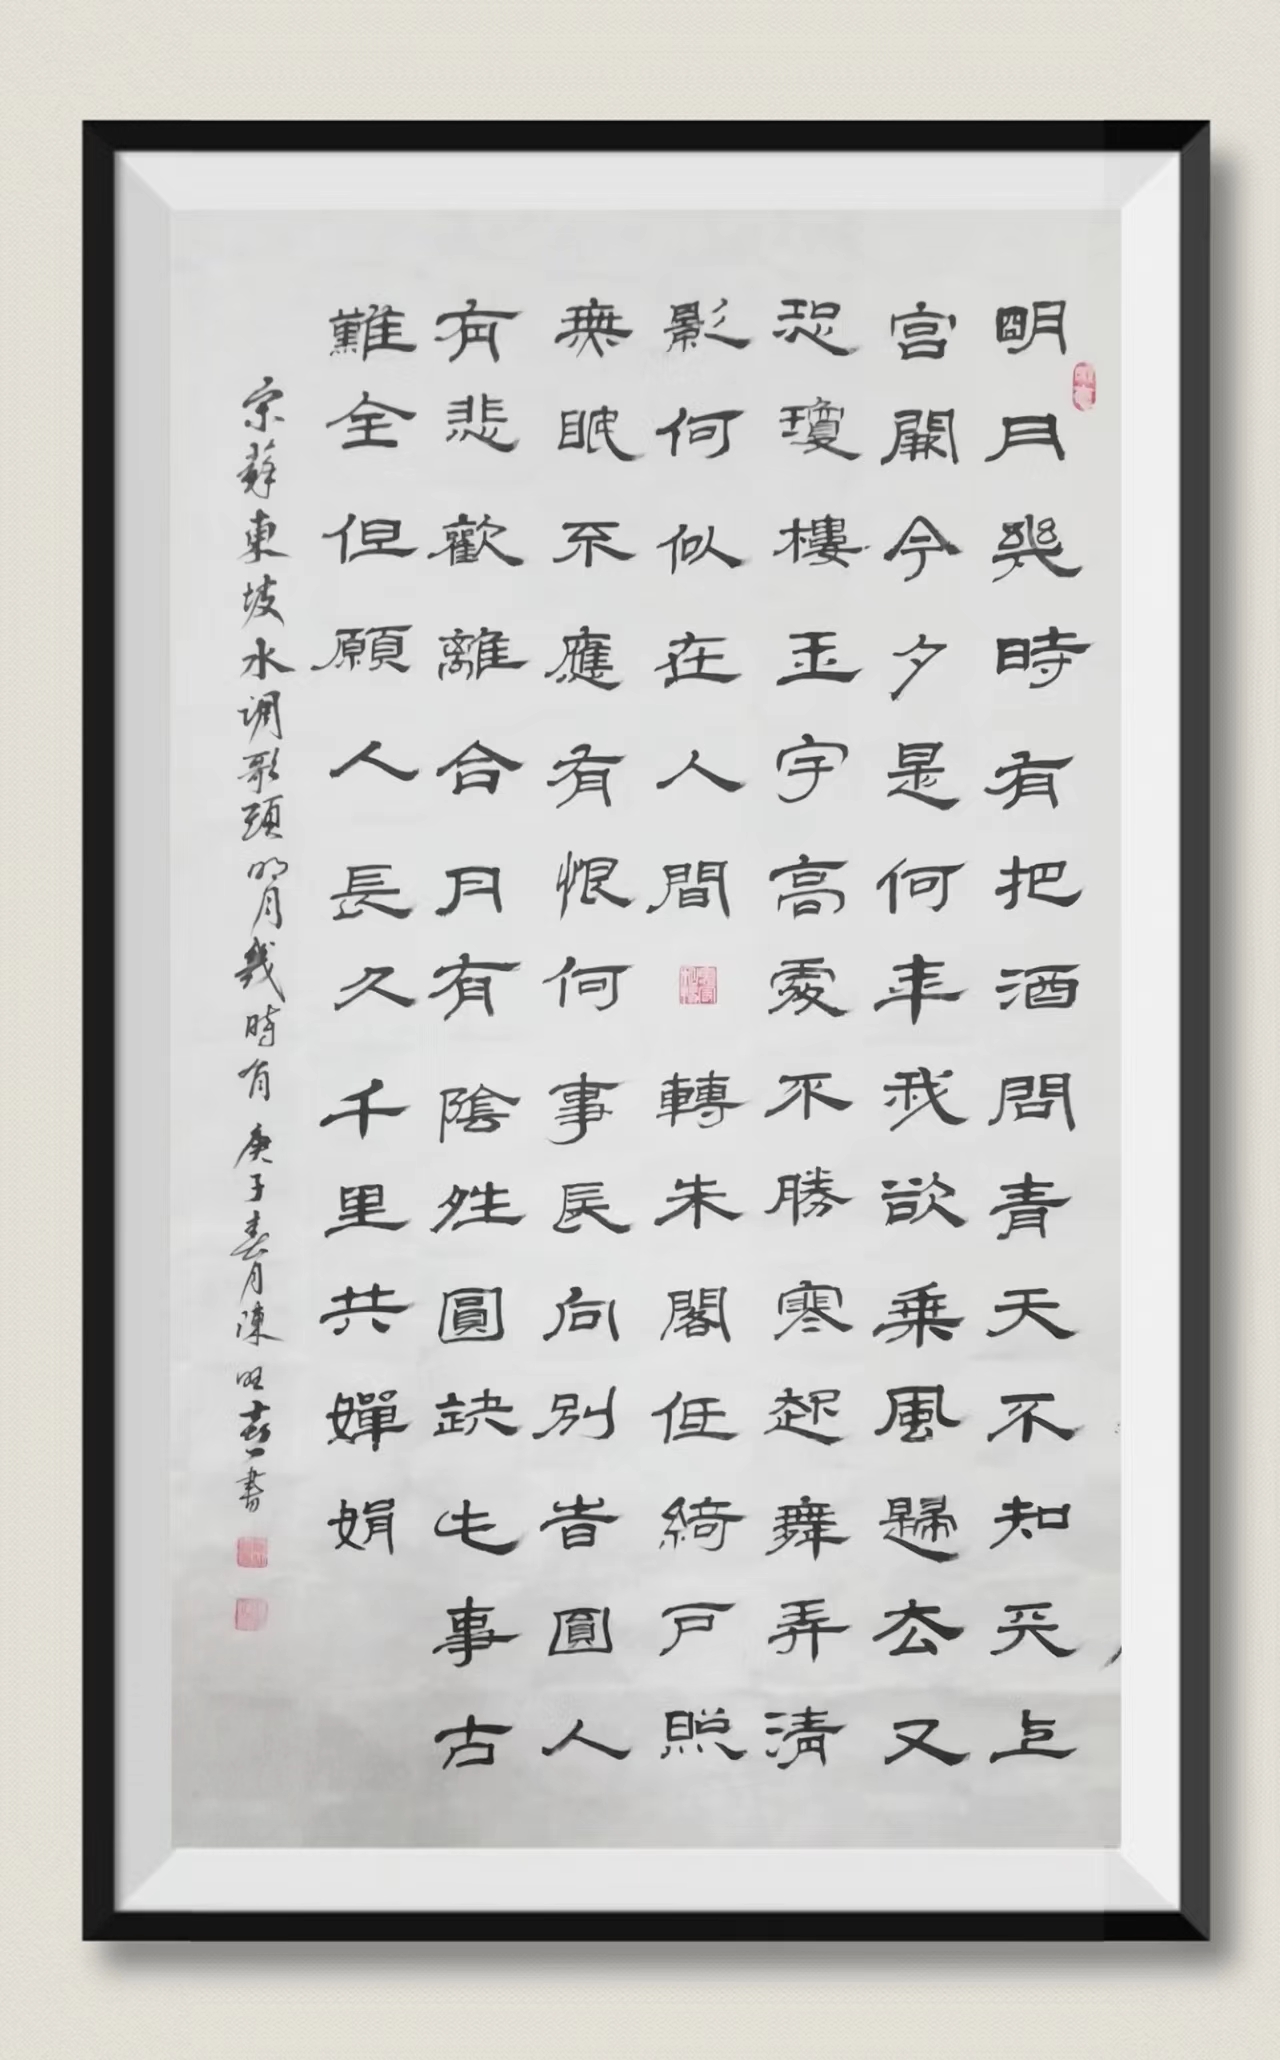 明月幾時有把酒問青天不知天上
宮闕今夕是何年我欲乘風歸去又
恐瓊樓玉宇高處不勝寒起舞弄清
影何似在人間 轉朱閣低綺戶照
無眠不應有恨何事長向別旹圓人
有悲歡離合月有陰夝圓缺此事古
難全但願人長久千里共嬋娟
宋蘇東坡水調歌頭明月幾時有 庚子春月陳旺喜書